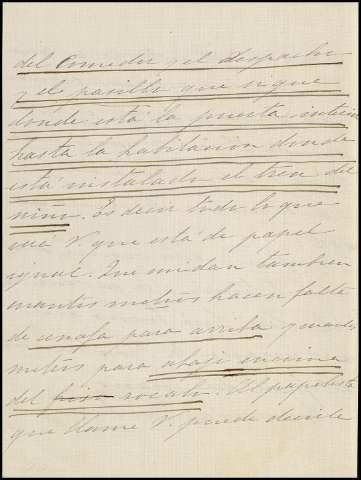 del comedor y el despacho
y el pasillo que sigue
donde está la puerta interior
hasta la habitación donde
está instalado el tren del
niño. Es decir todo lo que
vea V. que está de papel
igual. Que midan tambien
cuantos metros hacen falta
de cenefa para arriba y cuantos
metros para abajo encima
del friso rocalo. Al papelista
que llame V. puede decirle